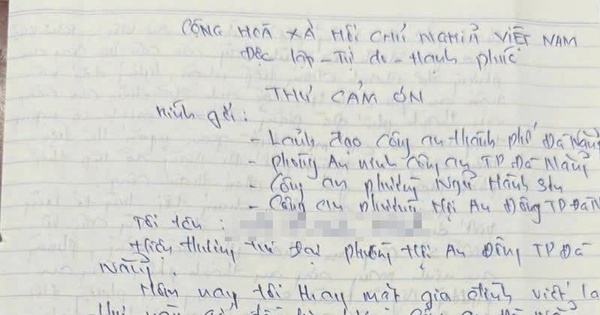 CỘNG HOÀ XÃ HỘI CHỦ NGHĨA VIỆT NAM
Độc lập - Tự do - Hạnh phúc
THƯ CẢM ƠN
Kính gửi:
- Lãnh đạo Công an thành phố Đà Nẵng
- Phòng An ninh Công an TP. Đà Nẵng
- Công an phường Ngũ Hành Sơn
- Công an phường Hội An Đông TP Đà N
Tôi tên :
Hiện thường trú tại phường Hội An Đông TP Đà
Nẵng.
Hôm nay tôi thay mặt gia đình viết la